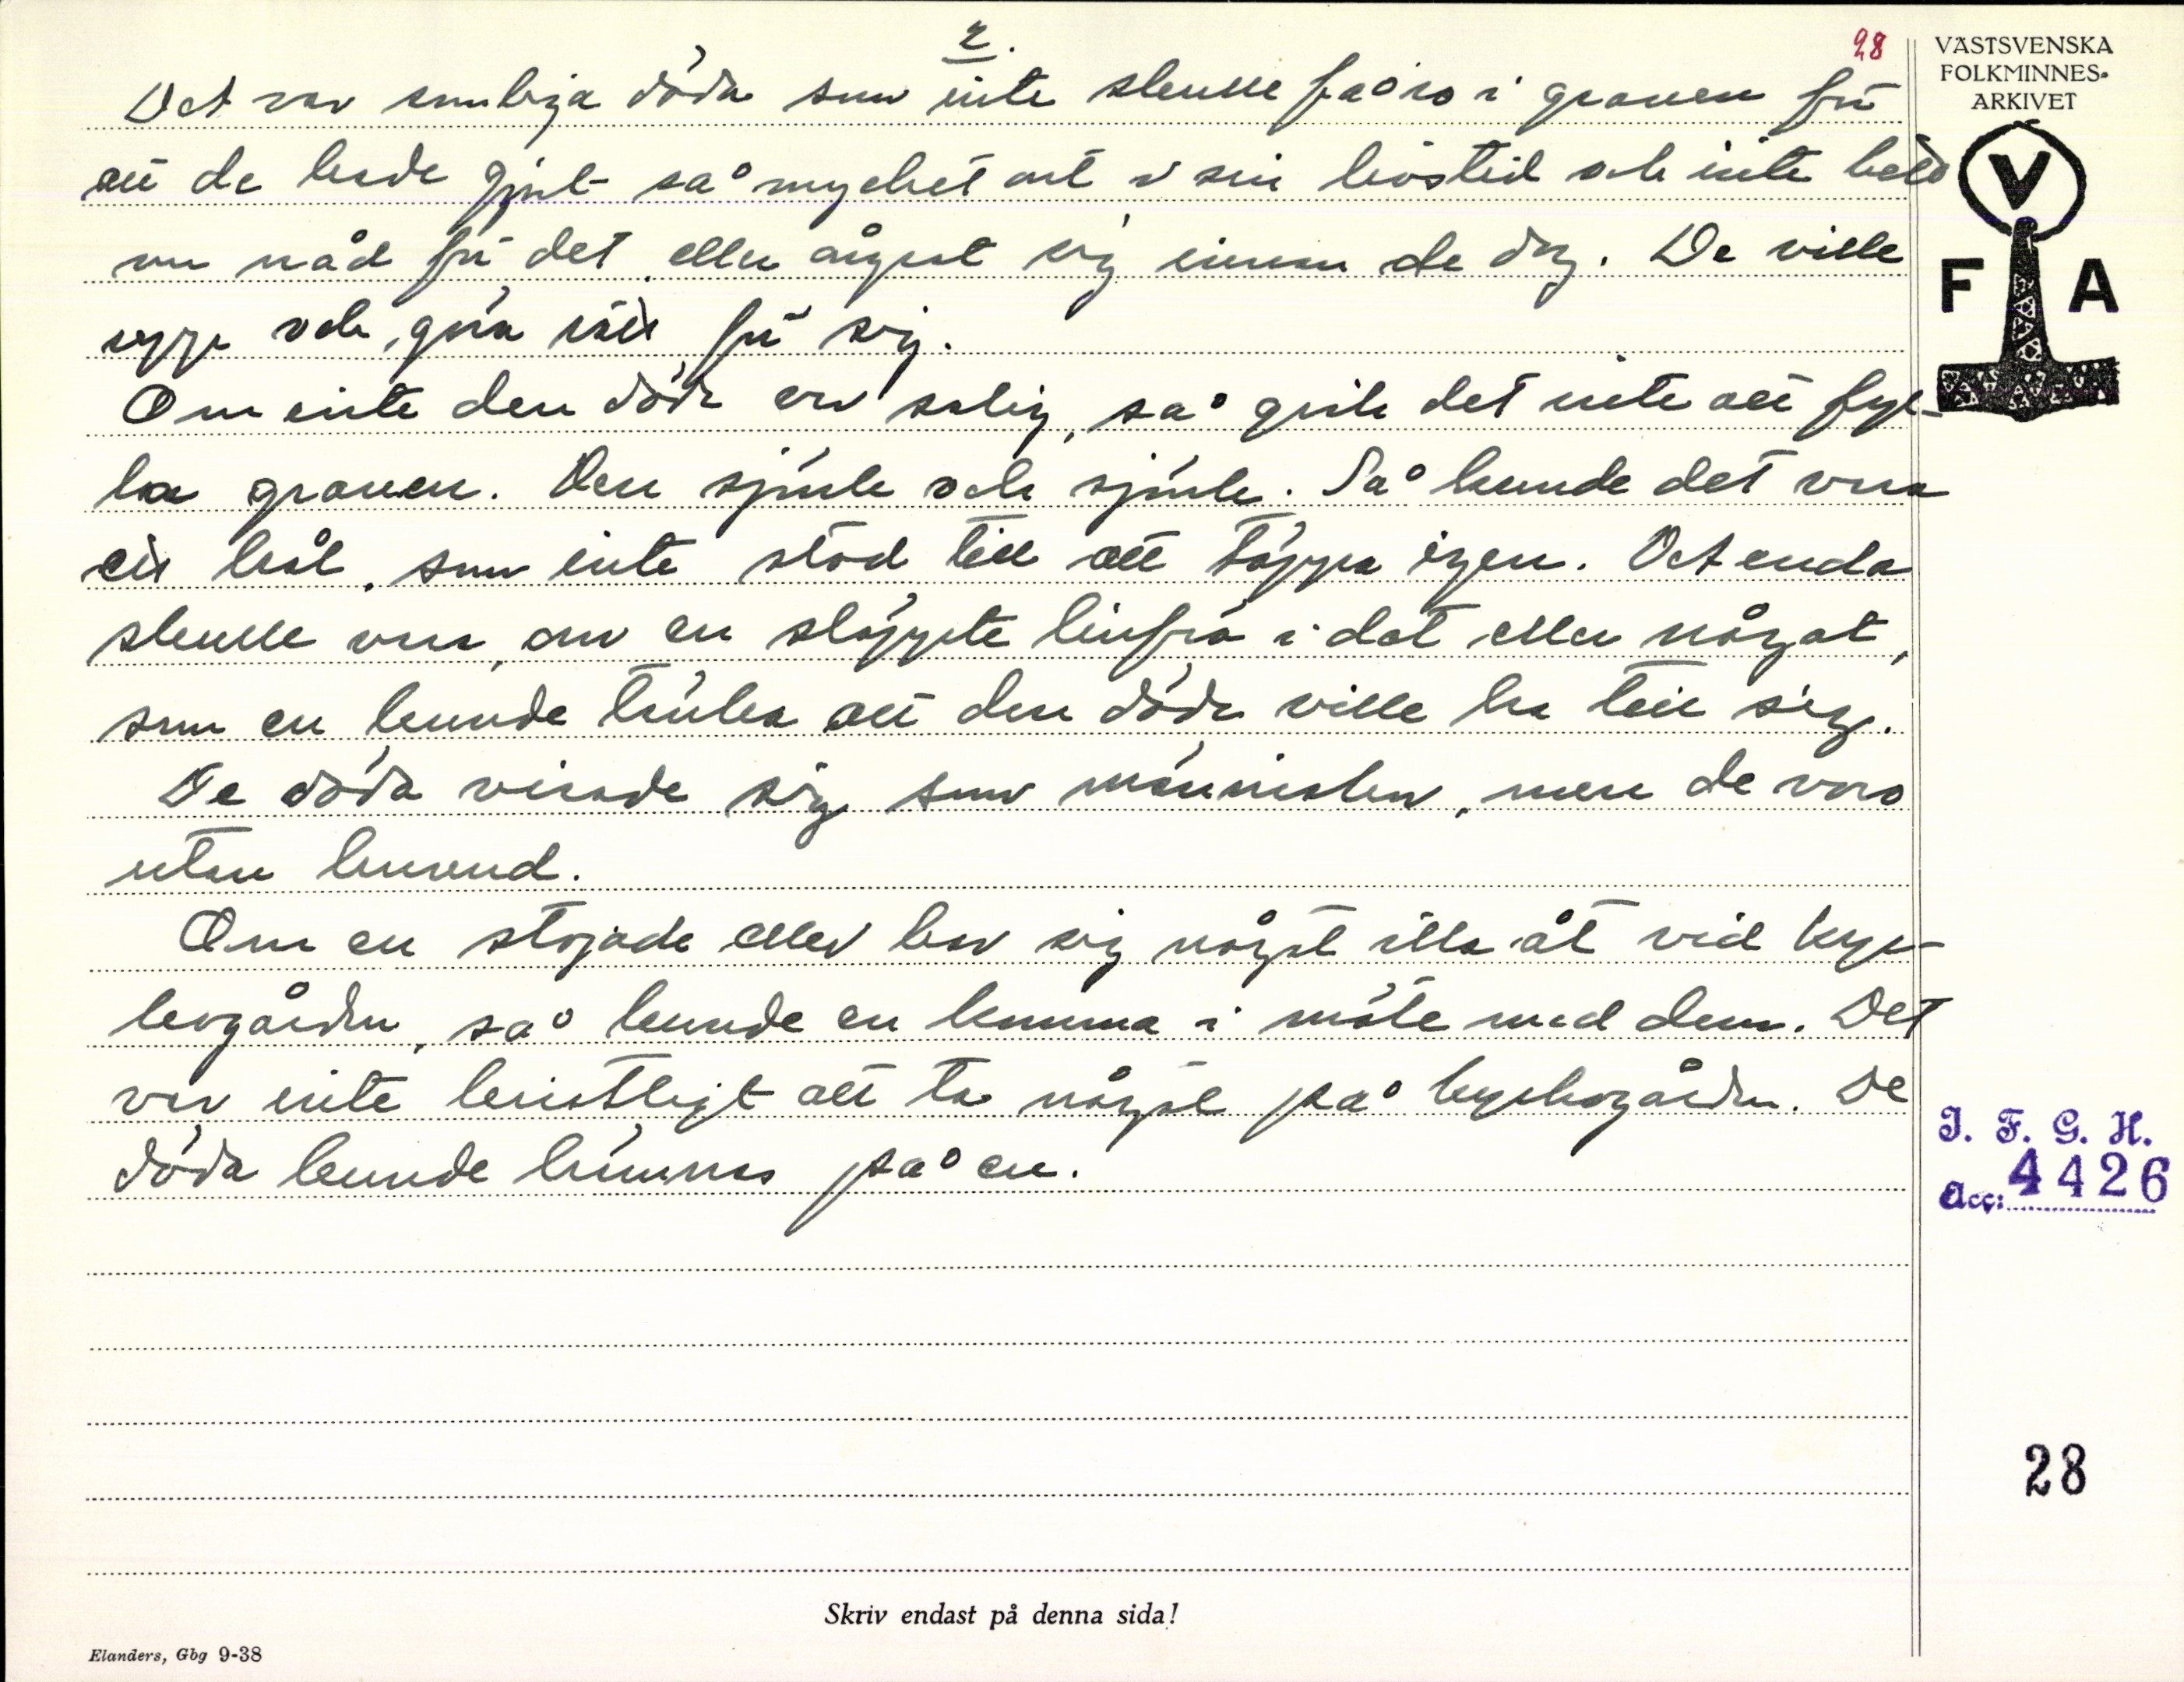 2.
28
VÄSTSVENSKA
FOLKMINNES-
ARKIVET
V
F A
Det var somliga döda som inte skulle få ro i graven för
att de hade gjort så mycket ont i sin livstid och inte bett
om nåd för det eller ångrat sig innan de dog. De ville
upp och göra rätt för sig.
Om inte den döde var salig, så gick det inte att fyl-
la graven. Den sjönk och sjönk. Så kunde det vara
ett hål, som inte stod till att täppa igen. Det enda
skulle vara, om en släppte linfrö i det eller något,
som en kunde tänka att den döde ville ha till sig.
De döda visade sig som människor, men de voro
utan huvud.
Om en stojade eller bar sig något illa åt vid kyr-
kogården, så kunde en komma i möte med dem. Det
var inte kristligt att ta något på kyrkogården. De
döda kunde hämnas på en.
I. F. G. H.
Acc: 4426
28
Skriv endast på denna sida!
Elanders, Gbg 9-38